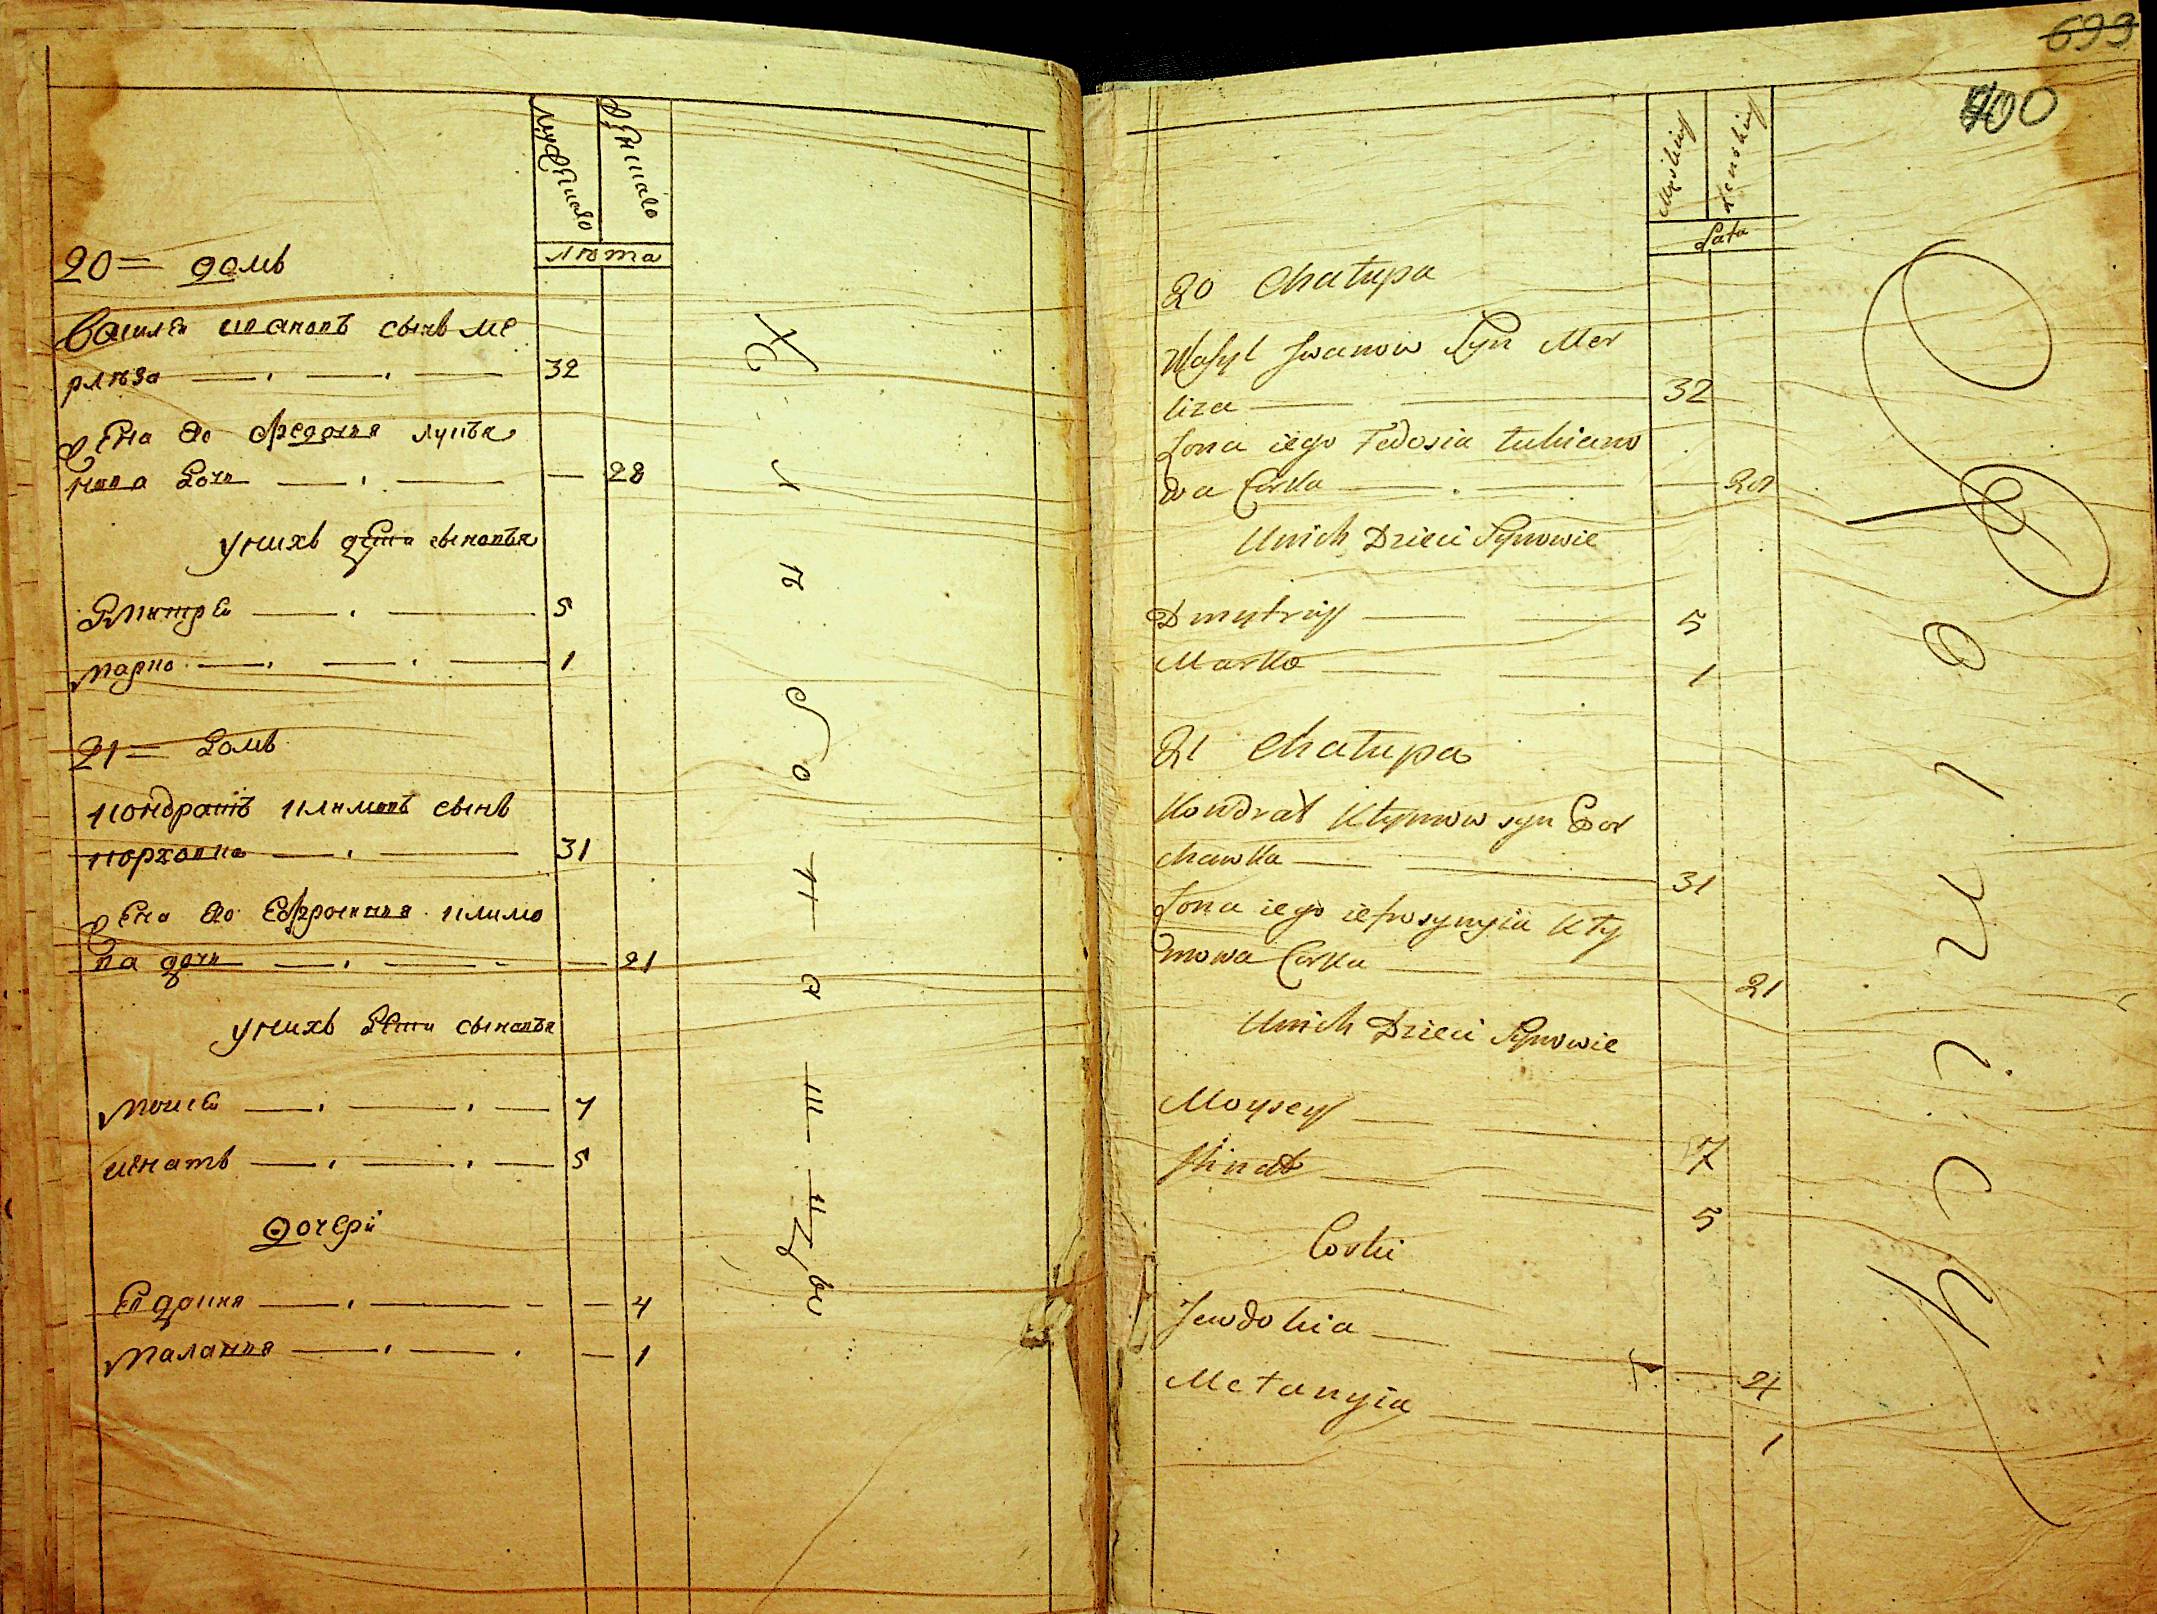 мужескаго
женскаго
лѣта
20 = домъ
Василей ивановъ сынъ ме
рлѣза 32
Жена его Федосия лукья
нова дочь 28
у нихъ дети сыновья
Дмитрей 5
марко 1
21 = домъ
кондратъ климовъ сынъ
корховка 31
Жена его Ефросиния климо
ва дочь 21
у нихъ дети сыновья
Моисей 7
игнатъ 5
дочери
Евдокия 4
Малания 1
699
700
Męskiey
Zenskiey
Lata
20 Chałupa
Wasyl Jwanow Syn Mer
liza 32
Zona iego Fedosia łukiano
wa Corka 28
Unich Dzieci Synowie
Dmytriy 5
Marko 1
21 Chałupa
Kondrat Kłymow syn Kor
chawka 31
Zona iego iefrosynyia Kły
mowa Corka 21
Unich Dzieci Synowie
Moysey 7
Ihnat 5
Corki
Jewdokia 4
Mełanyia 1